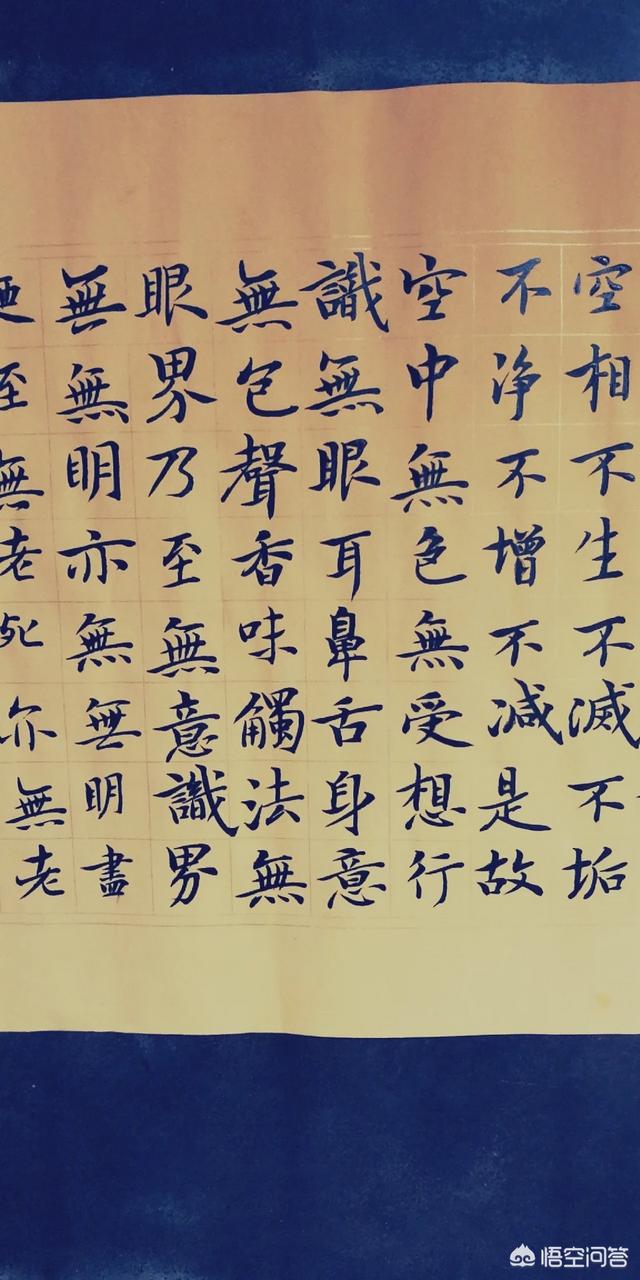 空相不生不滅不垢
不淨不增不減是故
空中無色無受想行
識無眼耳鼻舌身意
無色聲香味觸法無
眼界乃至無意識界
無無明亦無無明盡
乃至無老死亦無老
悟空问答